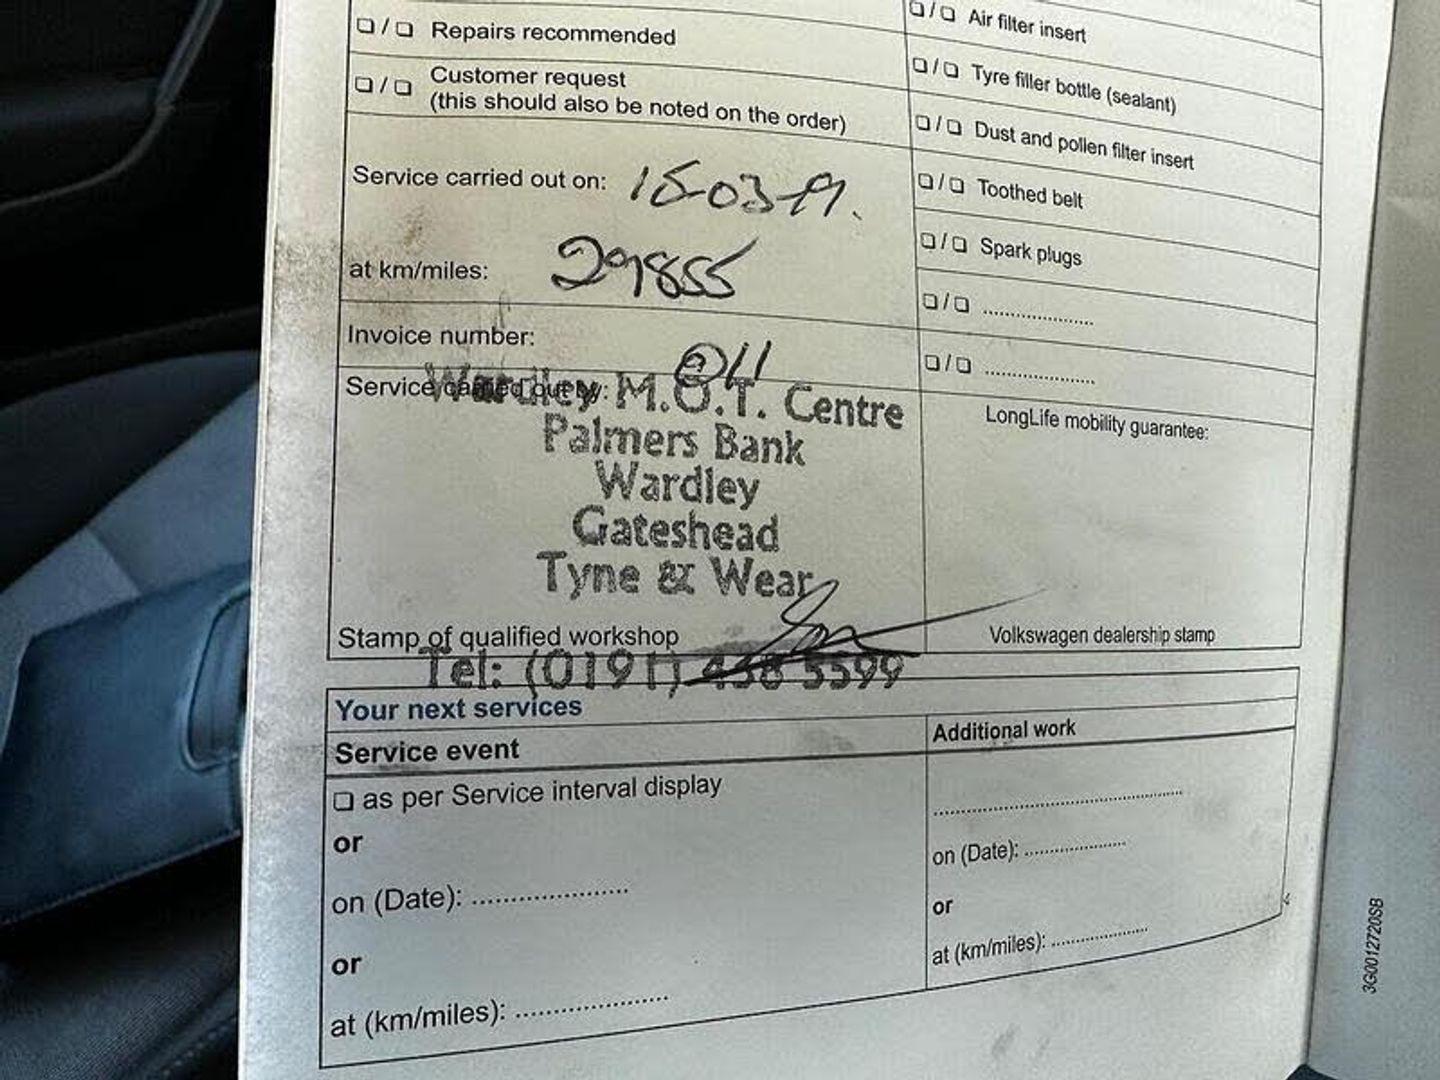 ❏ / ❏ Repairs recommended
❏ / ❏ Customer request
(this should also be noted on the order)
Service carried out on: 15-03-19.
at km/miles: 29855
Invoice number:
Service carried out by:
Wardley M.O.T. Centre
Palmers Bank
Wardley
Gateshead
Tyne & Wear
Stamp of qualified workshop
Tel: (0191) 438 5599
❏ / ❏ Air filter insert
❏ / ❏ Tyre filler bottle (sealant)
❏ / ❏ Dust and pollen filter insert
❏ / ❏ Toothed belt
❏ / ❏ Spark plugs
❏ / ❏ ......................
❏ / ❏ ......................
LongLife mobility guarantee:
Volkswagen dealership stamp
Your next services
Service event
❏ as per Service interval display
or
on (Date): ......................
or
at (km/miles): ......................
Additional work
..................................................
on (Date): ......................
or
at (km/miles): ......................
3G0012720SB